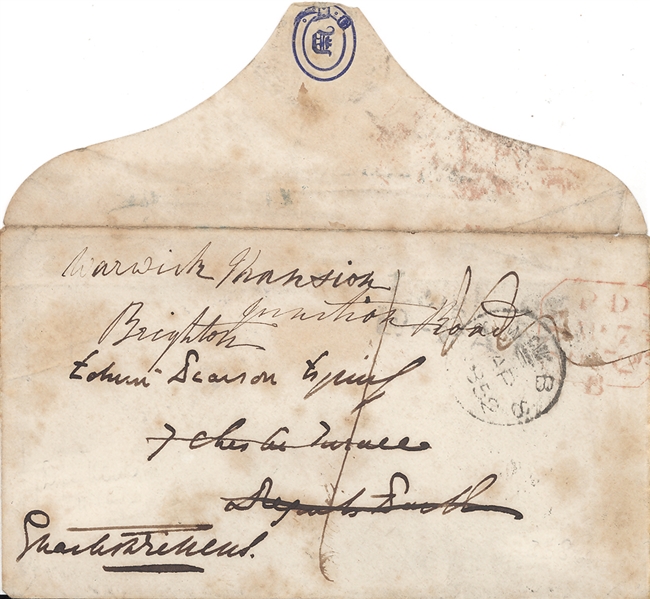 Warwick Mansion
Junction Road
Brighton
Edwin Pearson Esquire
7 Chester Terrace
Regents Park
Charles Dickens.
P D
B
AP
8